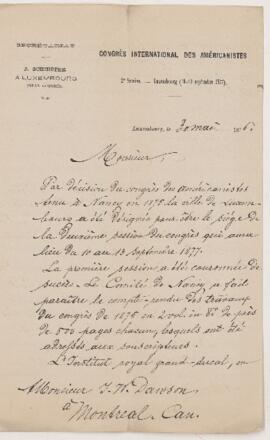 SECRÉTARIAT
CONGRÈS INTERNATIONAL DES AMÉRICANISTES
A LUXEMBOURG
2e Session. — Luxembourg (10-13 septembre 1877).
Luxembourg, le 30 mai 1876.
Monsieur,
Par décision du congrès des américanistes
tenu à Nancy en 1875 la ville de Luxem-
bourg a été désignée pour être le siège de
la deuxième session du congrès qui aura
lieu du 10 au 13 septembre 1877.
La première session a été couronnée de
succès. Le Comité de Nancy a fait
paraître le compte-rendu des travaux
du congrès de 1875 en 2 vol in 8° de près
de 500 pages chacun, lesquels ont été
adressés aux souscripteurs.
L'Institut royal grand-ducal, en
Monsieur J. W. Dawson
à Montreal. Can.